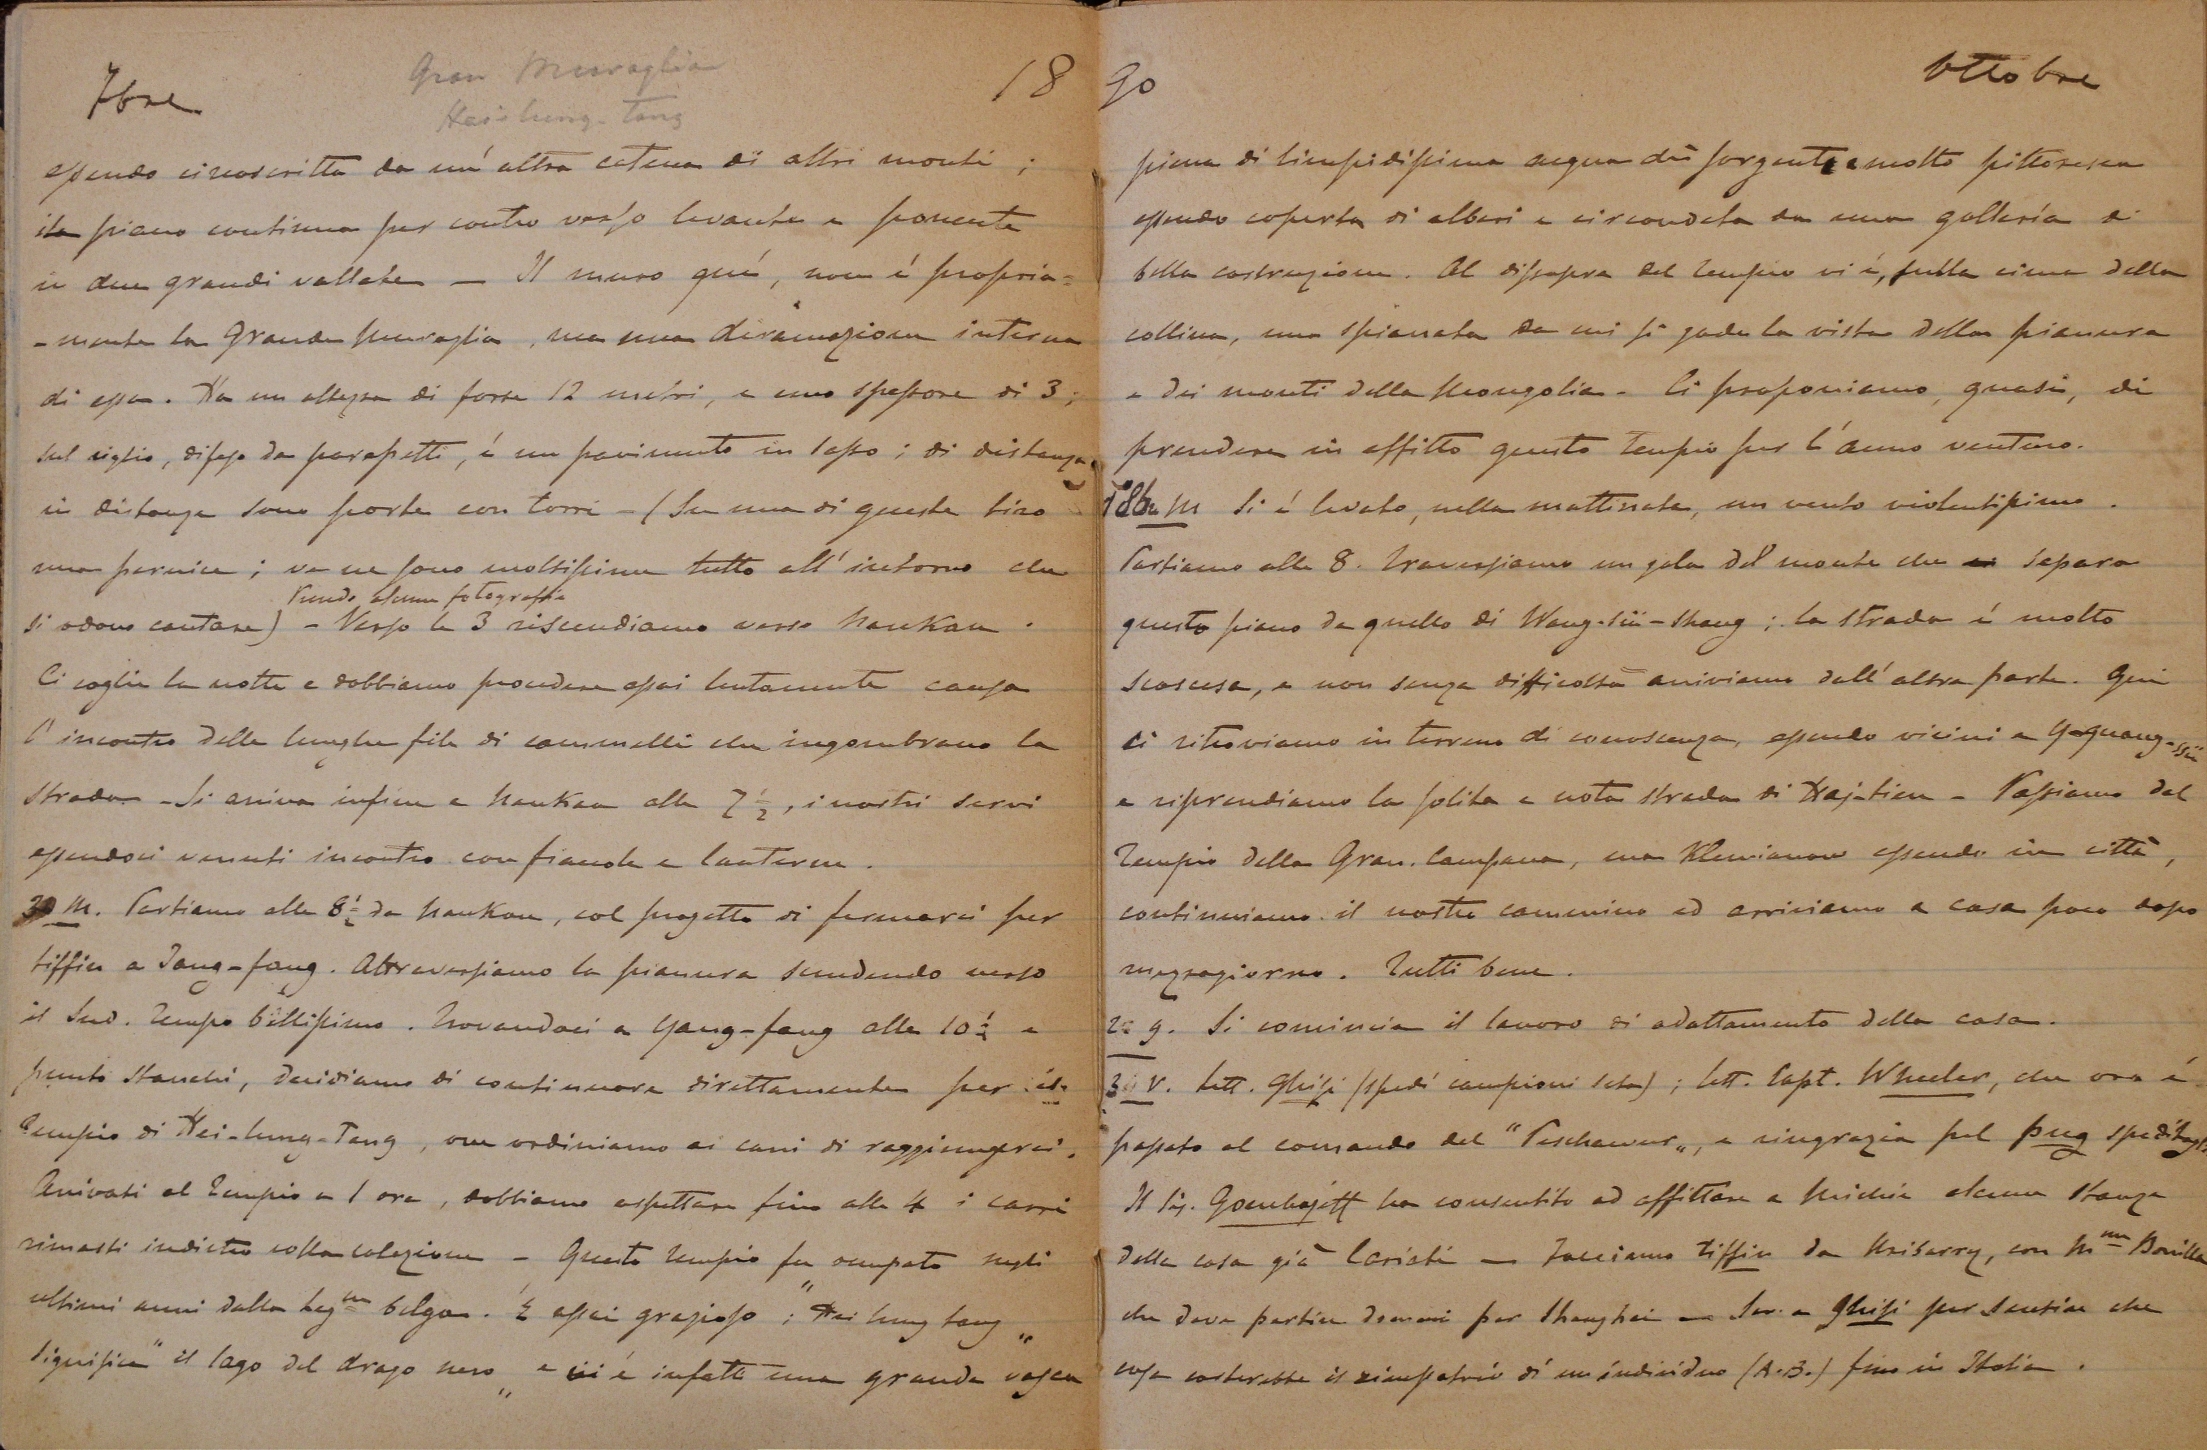 7bre
Gran Muraglia
Hei-lung-tang
18
essendo circoscritta da un'altra catena di altri monti ;
il piano continua per contro verso levante e ponente
in due grandi vallate — Il muro quí, non é propria=
-mente la Grande Muraglia, ma una diramazione interna
di essa. Ha un altezza di forse 12 metri, e uno spessore di 3 ;
sul ciglio, difeso da parapetti, é un pavimento in sasso ; di distanza
in distanza sono porte con torri — (Su una di queste tiro
una pernice ; ve ne sono moltissime tutto all'intorno che
Prendo alcune fotografie
si odono cantare) — Verso le 3 riscendiamo verso Nankau.
Ci coglie la notte e dobbiamo procedere assai lentamente causa
l'incontro delle lunghe file di cammelli che ingombrano la
strada — Si arriva infine a Nankau alle 7 ½, i nostri servi
essendoci venuti incontro con fiacole e lanterne.
30 M. Partiamo alle 8½ da Nankau, col progetto di fermarci per
tiffin a Yang-fang. Attraversiamo la pianura scendendo verso
il Sud. Tempo bellissimo. Trovandoci a Yang-fang alle 10½ e
punto stanchi, decidiamo di continuare direttamente per il
tempio di Hei-lung-Tang, ove ordiniamo ai carri di raggiungerci.
Arrivati al Tempio a 1 ora, dobbiamo aspettare fino alle 4 i carri
rimasti indietro colla colazione — Questo tempio fu occupato negli
ultimi anni dalla Legne belga. É assai grazioso ; "Hei lung tang"
significa "il lago del drago nero" e vi é infatti una grande vasca
90
Ottobre
piena di limpidissima acqua di sorgente e molto pittoresca
essendo coperta di alberi e circondata da una gallería di
bella costruzione. Al dissopra del tempio vi é, sulla cima della
collina, una spianata da cui si gode la vista della pianura
e dei monti della Mongolia — Ci proponiamo, quasi, di
prendere in affitto questo tempio per l'anno venturo.
1 8bre M Si é levato, nella mattinata, un vento violentissimo.
Partiamo alle 8. Traversiamo un gola del monte che separa
questo piano da quello di Wang-sü-shang ; la strada é molto
scoscesa, e non senza difficoltà arriviamo dall'altra parte. Qui
ci ritroviamo in terreno di conoscenza, essendo vicini a Y-quang-ssü
e riprendiamo la solita e nota strada di Hajatien — Passiamo dal
Tempio della Gran. Campana, ma Klemianow essendo in città,
continuiamo il nostro cammino ed arriviamo a casa poco dopo
mezzogiorno. Tutti bene.
2 g. Si comincia il lavoro di adattamento della casa.
3 V. Lett. Ghisi (spedì campioni seta) ; lett. Capt. Wheeler, che ora é
passato al comando del "Peschawur", e ringrazia pel pug speditogli
Il Sig. Gombojeff ha consentito ad affittare a Michie alcune stanze
della casa già Cariati — Facciamo tiffin da Krisarry, con Mme Bonilla
che deve partire domani per Shanghai — Scr. a Ghisi per sentire che
cosa costerebbe il rimpatrio di un individuo (A.B.) fino in Italia.